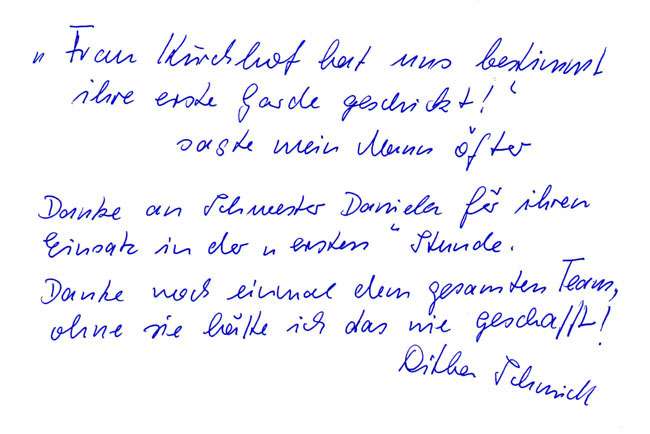 „Frau Kirchhof hat uns bestimmt
ihre erste Garde geschickt!“
sagte mein Mann öfter
Danke an Schwester Daniela für ihren
Einsatz in der „ersten“ Stunde.
Danke noch einmal dem gesamten Team,
ohne sie hätte ich das nie geschafft!